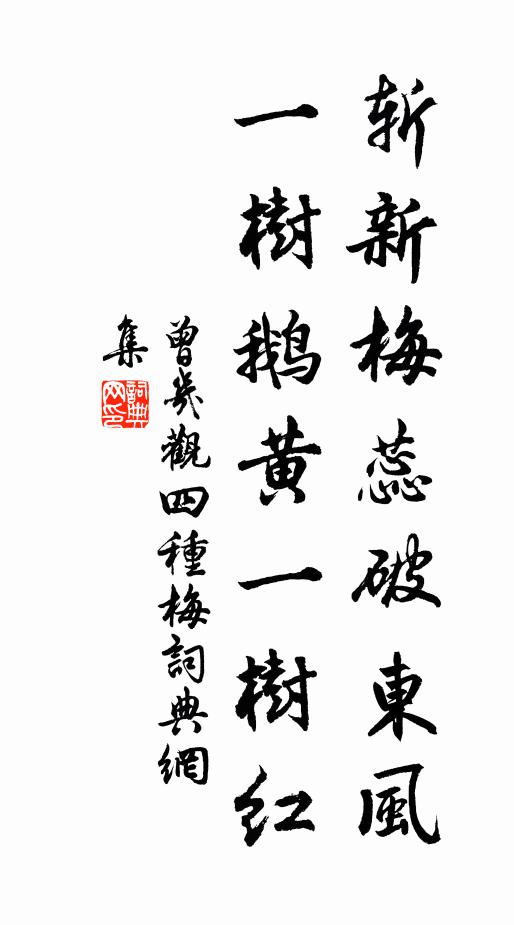 斬新梅蕊破東風
一樹鵝黃一樹紅
曾幾觀四種梅詞典網
集
詞典網印